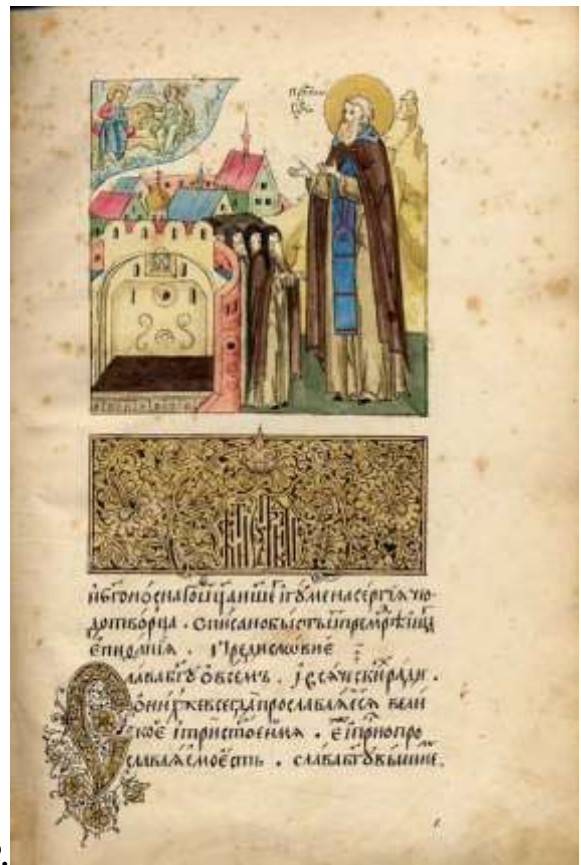 и҆бг҃оно́снаго ѻц҃а нш҃е ігꙋ́мена се́ргїѧ чю
дотво́рца . Спи́сано бы́сть ѿ премꙋдрѣ́йша
Епифа́нїѧ . Предисло́вїе
Слава бг҃ꙋ ѻ҆ всемъ . і всѧ́ческихъ ра́ди .
ѻ них же всегда̀ прославлѧ́есѧ вели
кое і трист҃о́е имѧ . е҆ і при́сно про
славлѧ́емо е҆сть . слава бг҃ꙋ вы́шне